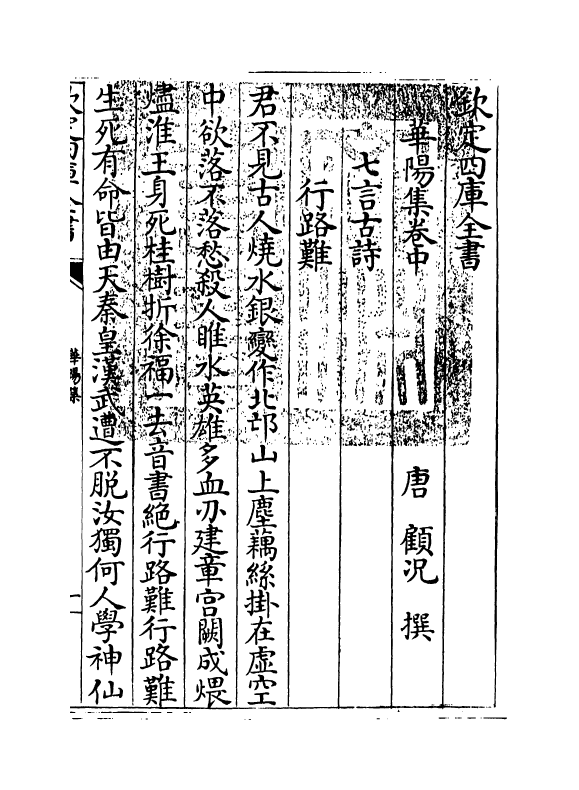 欽定四庫全書
華陽集卷中
唐 顧況 撰
七言古詩
行路難
君不見古人燒水銀變作北邙山上塵藕絲掛在虛空
中欲落不落愁殺人睢水英雄多血刃建章宮闕成煨
燼淮王身死桂樹折徐福一去音書絶行路難行路難
生死有命皆由天秦皇漢武遭不脱汝獨何人學神仙
華陽集
一